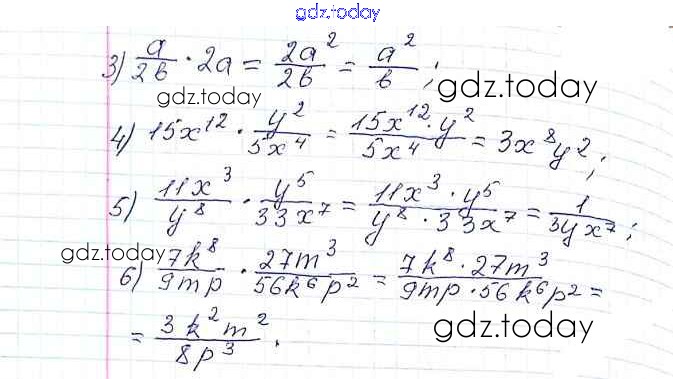 gdz.today
3) a/2b · 2a = 2a²/2b = a²/b ;
gdz.today gdz.today
4) 15x¹² · y²/5x⁴ = 15x¹² · y²/5x⁴ = 3x⁸y² ;
5) 11x³/y⁸ · y⁵/33x⁷ = 11x³ · y⁵/y⁸ · 33x⁷ = 1/3yx⁷ ;
gdz.today
6) 7k⁸/9mp · 27m³/56k⁶p² = 7k⁸ · 27m³/9mp · 56k⁶p² =
= 3k²m²/8p³ .
gdz.today